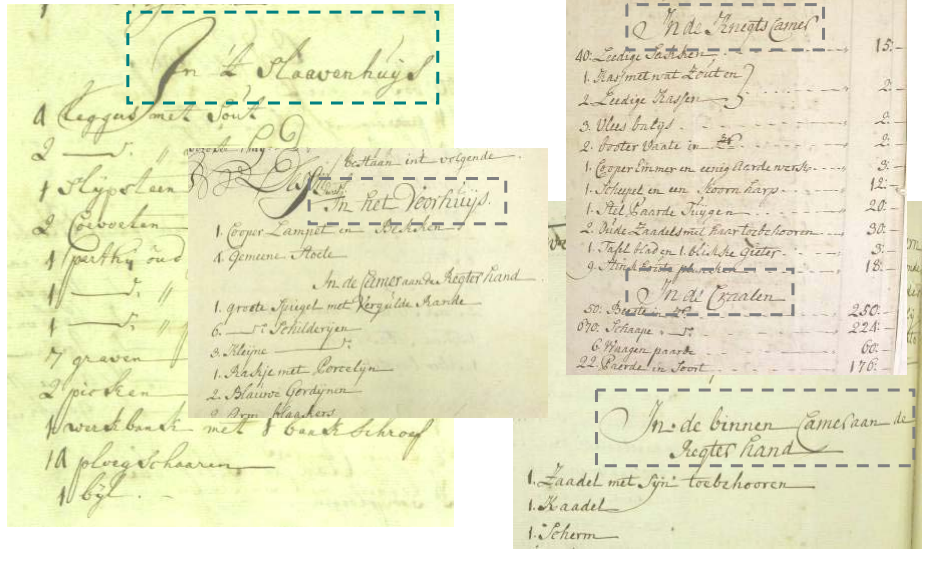 In 't Slaavenhuijs
4 leggers met Sout
2 — d°. "
1 Slijpsteen
2 Coevoeten
1 parthij oúd
1 — d°. "
1 — d°. "
7 graven
2 picken
1 werkbank met 1 bankschroef
10 ploegschaaren
1 bijl
bestaan int volgende
In het Voorhuijs.
1. Cooper Lampet en Bekken
4. Gemeene Stoele
In de Camer aan de Regter hand
1. groote Spiegel met Vergulde Rande
6. — d° Schilderijen
3. Kleijne — d°.
1. Kasje met Porcelijn
2. Blaúwe Gordijnen
2. Arm blaakers
In de Knegts Camer
40. Leedige Sakken 15:-
1. Kas met wat Zout en
2. Leedige Kassen 2:-
3. Vlees balijs 2:-
2. Booter Vaate in 2:-
1. Cooper Emmer en eenig Aardewerk 3:-
1. Scheepel en een Koorn harp 12:-
1. Stel Paarde Tuijgen 20:-
2. Oúde Zaadels met haar toebehooren 30:-
1. Tafel blad en 1. blikke gieter 3:-
9. 18:-
In de Craalen
50. Beeste in 250:-
670. Schaape d° 224:-
6. Waagen paarde 60:-
22. Paerde in Soort 176:-
In de binnen Camer aan de
Regter hand
1. Zaadel met Sijn toebehooren
1. Kaadel
1. Scherm